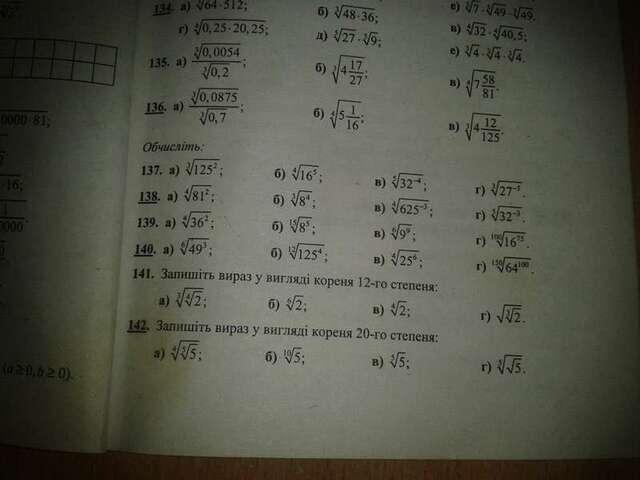 134. а) ∛(64·512); б) ∛(48·36); в) ∛7·∛49·∛49.
г) ∜(0,25·20,25); д) ∛27·∛9; в) ∜32·∜40,5;
е) ∛4·∛4·∛4.
135. а) ∛0,0054/∛0,2; б) ∛(4 17/27); в) ∜(7 58/81).
136. а) ∛0,0875/∛0,7; б) ∜(5 1/16); в) ∛(4 12/125).
0000·81;
·16;
0000
Обчисліть:
137. а) ∛(125²); б) ∜(16⁵); в) ⁵√(32⁻⁴); г) ∛(27⁻⁵).
138. а) ∜(81²); б) ∛(8⁴); в) ∜(625⁻³); г) ⁵√(32⁻³).
139. а) ∜(36²); б) ¹⁵√(8⁵); в) ⁶√(9⁹); г) ¹⁰⁰√(16⁷⁵).
140. а) ⁶√(49³); б) ¹²√(125⁴); в) ∜(25⁶); г) ¹⁵⁰√(64¹⁰⁰).
141. Запишіть вираз у вигляді кореня 12-го степеня:
а) ∛(∜2); б) ⁶√2; в) ∜2; г) √(∛2).
142. Запишіть вираз у вигляді кореня 20-го степеня:
а) ∜(⁵√5); б) ¹⁰√5; в) ⁵√5; г) ⁵√(√5).
(a≥0,b≥0).